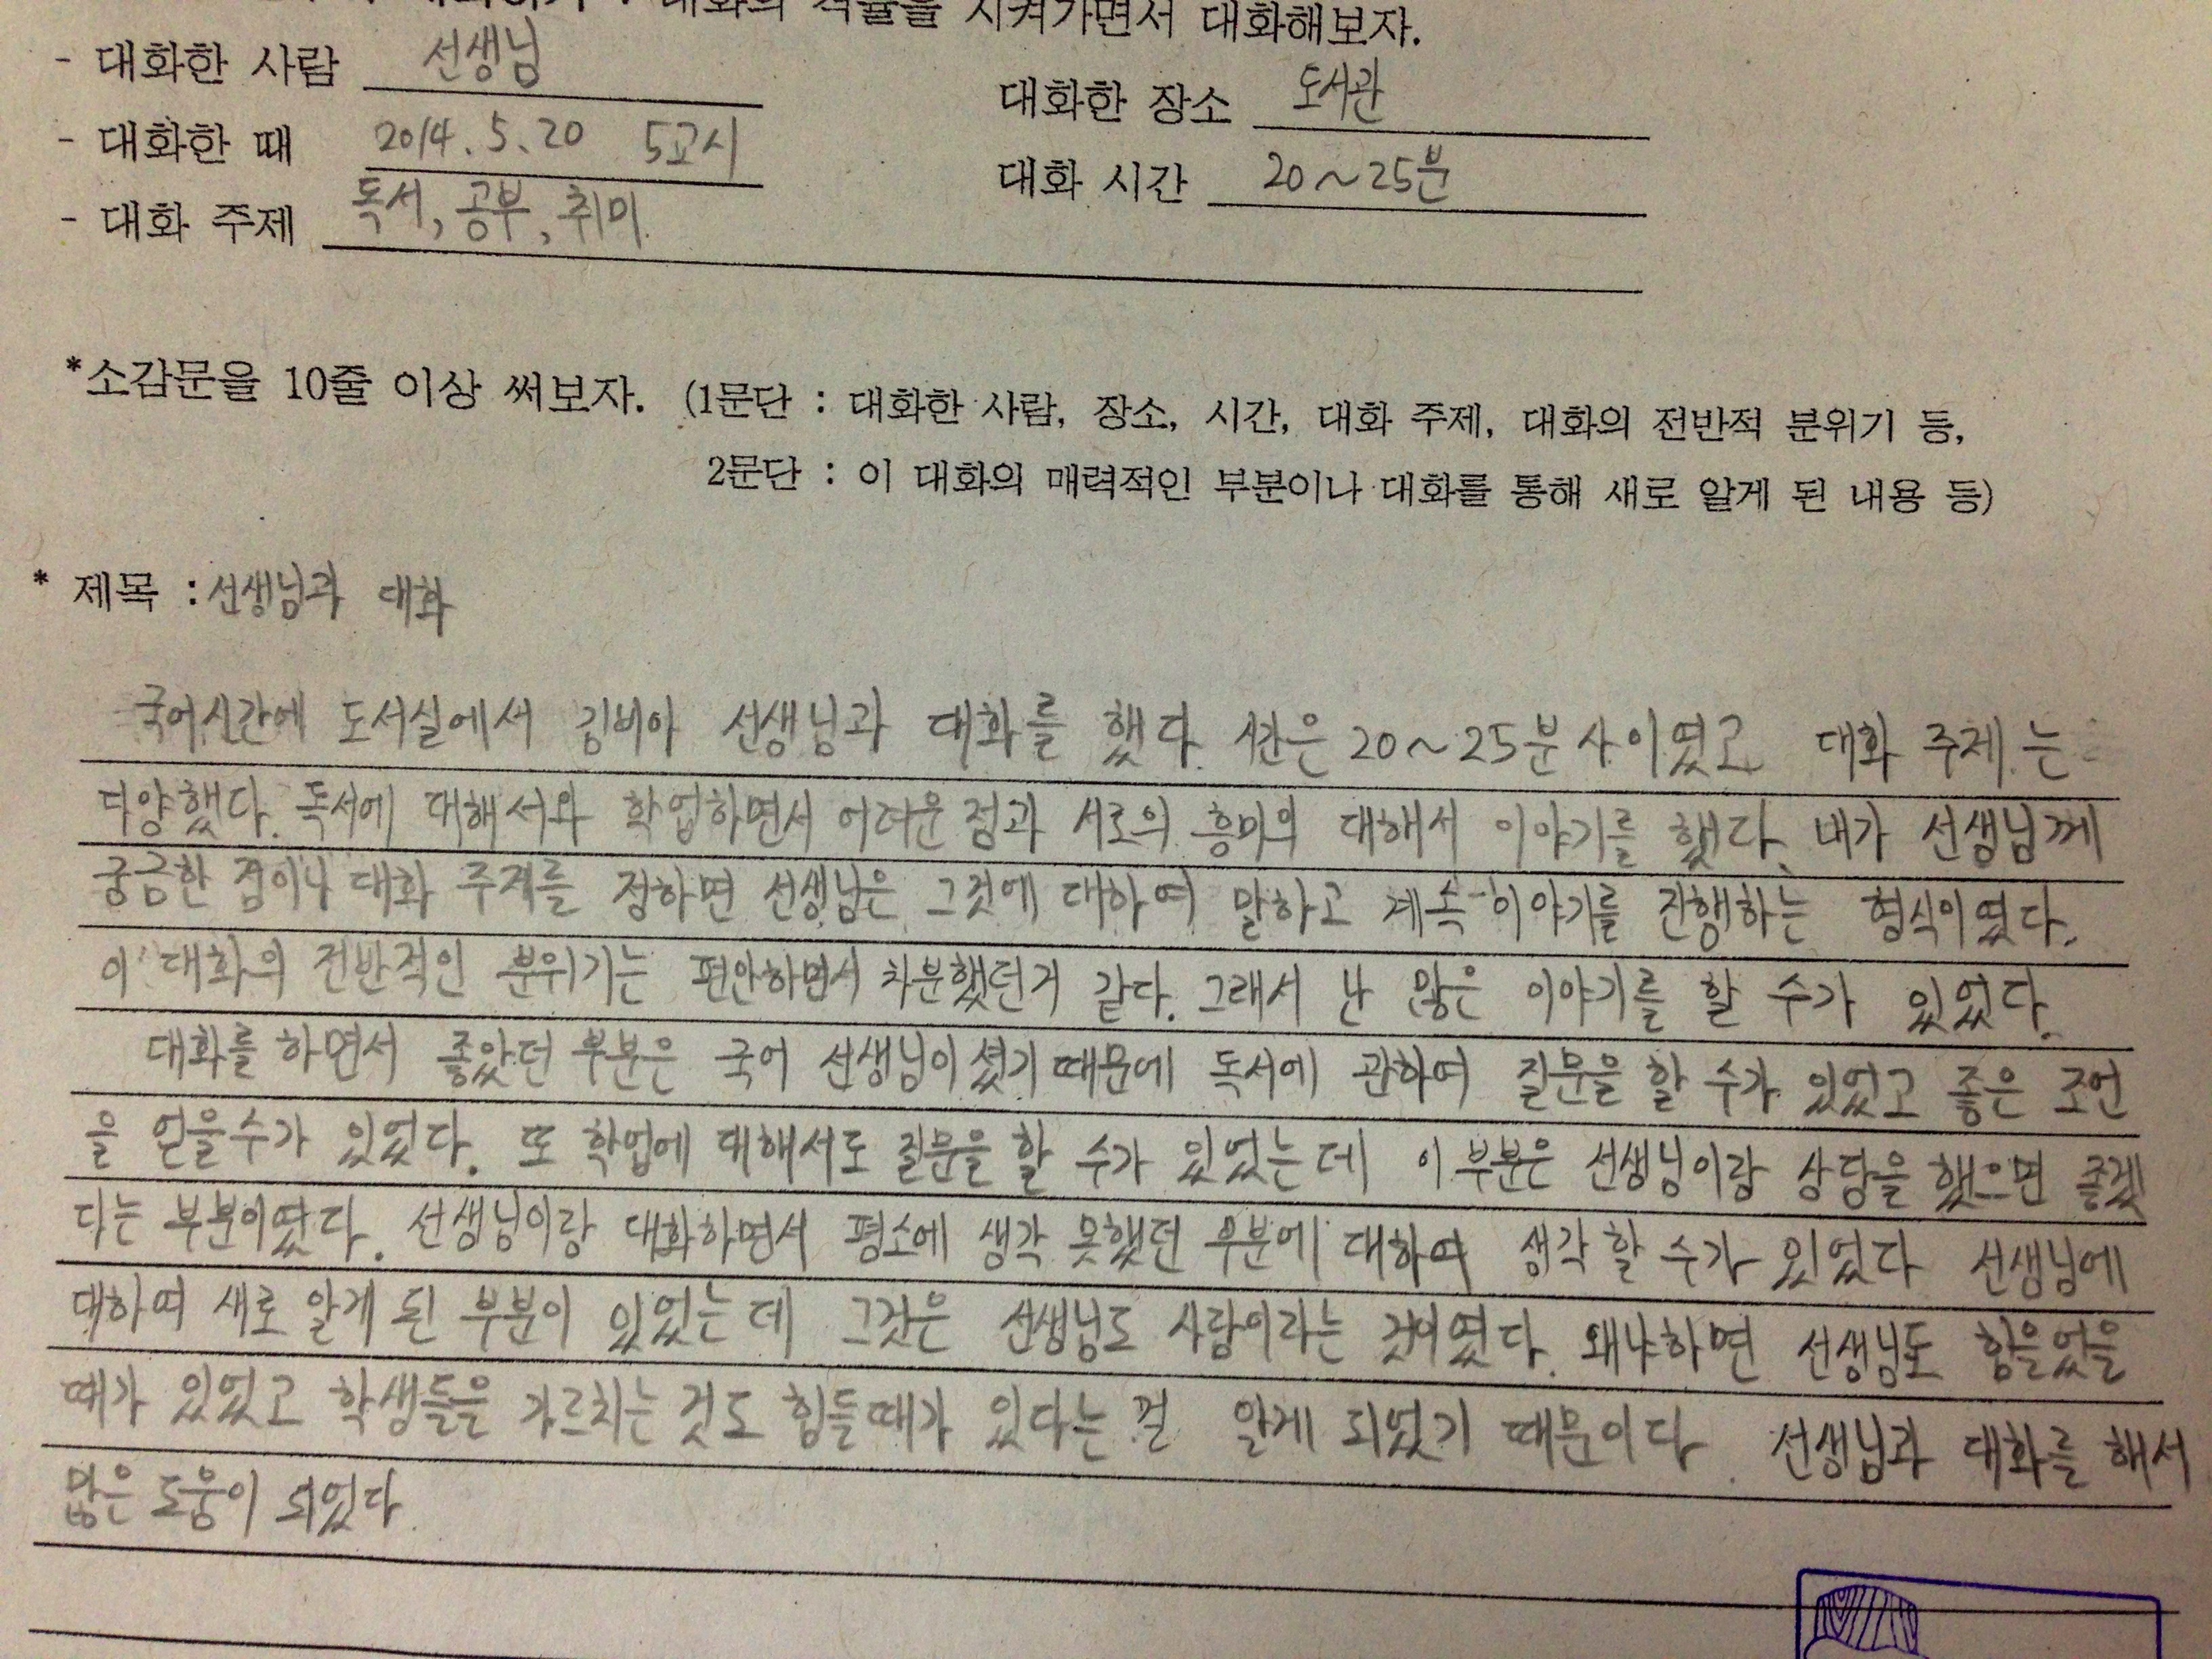 대화의 격률을 지켜가면서 대화해보자.
- 대화한 사람 선생님 대화한 장소 도서관
- 대화한 때 2014. 5. 20 5교시 대화 시간 20~25분
- 대화 주제 독서, 공부, 취미
*소감문을 10줄 이상 써보자. (1문단 : 대화한 사람, 장소, 시간, 대화 주제, 대화의 전반적 분위기 등,
2문단 : 이 대화의 매력적인 부분이나 대화를 통해 새로 알게 된 내용 등)
* 제목 : 선생님과 대화
국어시간에 도서실에서 김비아 선생님과 대화를 했다. 시간은 20~25분 사이였고 대화 주제는
다양했다. 독서에 대해서와 학업하면서 어려운 점과 서로의 흥미의 대해서 이야기를 했다. 내가 선생님께
궁금한 점이나 대화 주제를 정하면 선생님은 그것에 대하여 말하고 계속 이야기를 진행하는 형식이였다.
이 대화의 전반적인 분위기는 편안하면서 차분했던거 같다. 그래서 난 많은 이야기를 할 수가 있었다.
대화를 하면서 좋았던 부분은 국어 선생님이셨기 때문에 독서에 관하여 질문을 할 수가 있었고 좋은 조언
을 얻을수가 있었다. 또 학업에 대해서도 질문을 할 수가 있었는데 이 부분은 선생님이랑 상담을 했으면 좋겠
다는 부분이였다. 선생님이랑 대화하면서 평소에 생각 못했던 부분에 대하여 생각 할 수가 있었다 선생님에
대하여 새로 알게 된 부분이 있었는데 그것은 선생님도 사람이라는 것이였다. 왜냐하면 선생님도 힘들었을
때가 있었고 학생들을 가르치는 것도 힘들때가 있다는 걸 알게 되었기 때문이다. 선생님과 대화를 해서
많은 도움이 되었다